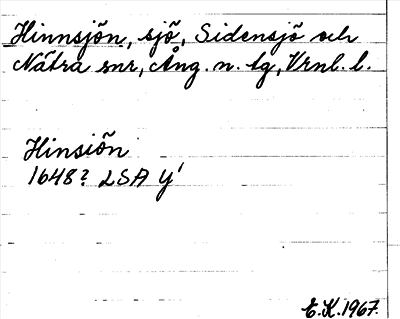 Hinnsjön, sjö, Sidensjö och
Nätra snr, Ång. n. tg, Vrnl. l.
Hinsiön
1648? LSA Y'
E.K.1967.